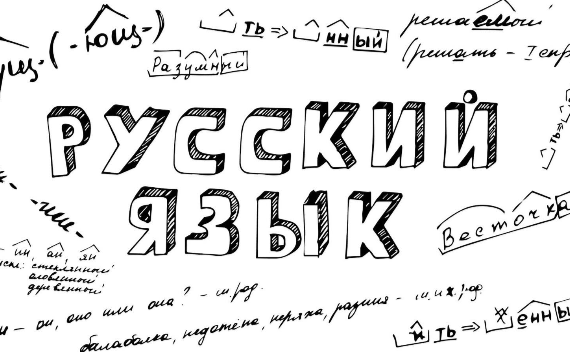 -ющ-)
ть => нн ый
Разумный
решаемый
(решать - I спр
РУССКИЙ
ЯЗЫК
Весточка
- ин, ан, ян
стеклянный
оловянный
деревянный
- он, оно или она? - м. род.
балаболка, недотёпа, неряха, разиня -
и ть => енн ы